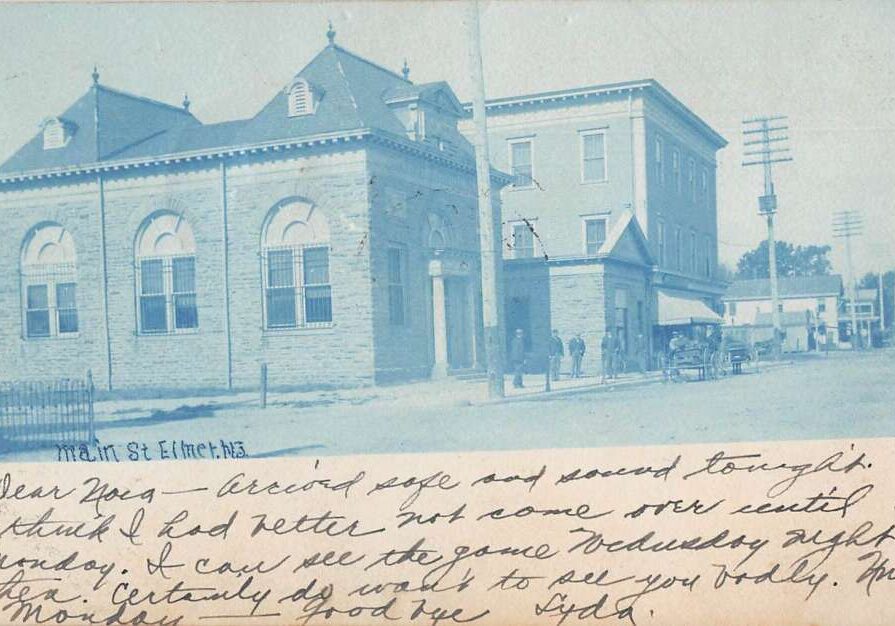 main St Elmer. N.J.
Dear Nora — Arrived safe and sound tonight.
think I had better not come over until
monday. I can see the game Wednesday night
then. Certainly do want to see you badly.
Monday — good bye Lyda.